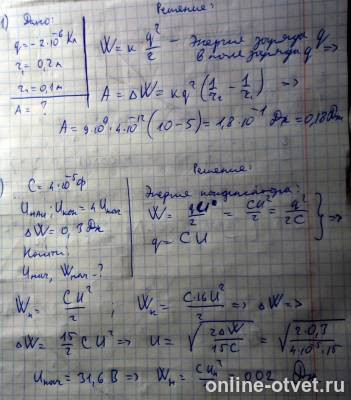 1) Дано:
q = -2·10⁻⁶ Кл
r₁ = 0,2 м
r₂ = 0,1 м
A = ?
Решение:
W = k q²/r - Энергия заряда q
в поле заряда q ⇒
A = ΔW = kq² (1/r₂ - 1/r₁) ⇒
A = 9·10⁹·4·10⁻¹² (10-5) = 1,8·10⁻¹ Дж = 0,18 Дж
) C = 4·10⁻⁵ Ф
Uкон = 4 Uнач
ΔW = 0,3 Дж
Найти:
Uнач, Wнач - ?
Решение:
Энергия конденсатора:
W = qU/2 = CU²/2 = q²/2C
q = CU } ⇒
Wн = CU²/2 ; Wк = C·16U²/2 ⇒ ΔW ⇒
ΔW = 15/2 CU² ⇒ U = √(2ΔW/15C) = √(2·0,3/4·10⁻⁵·15)
Uнач = 31,6 В ⇒ Wн = CUн²/2 = 0,02 Дж
online-otvet.ru